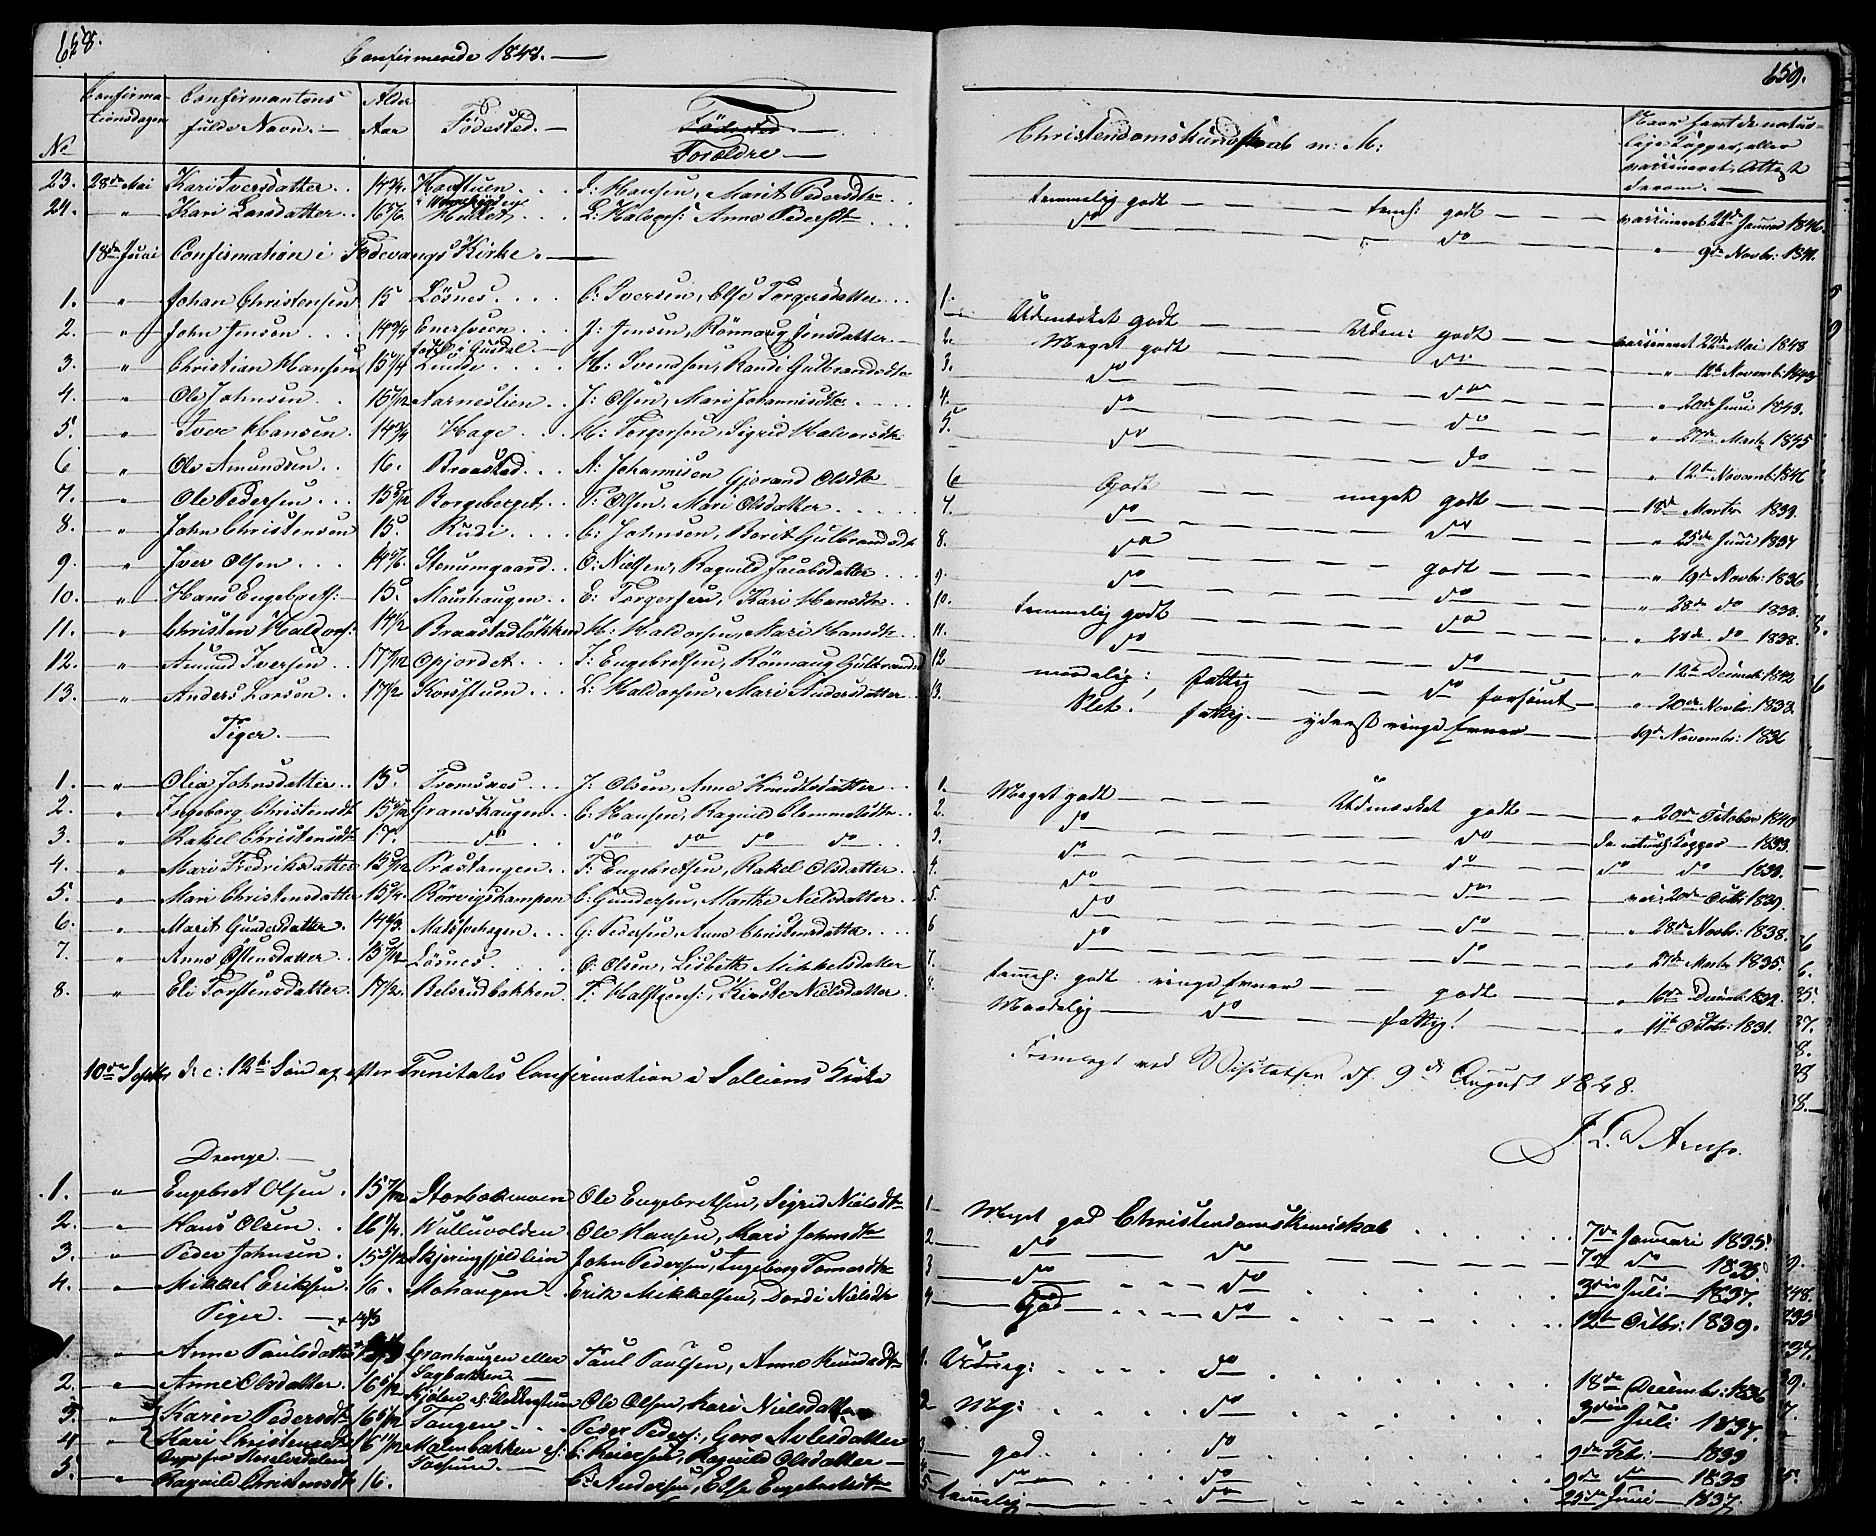 658.
Confirmerede 1848.
No
Confirmationsdagen
Confirmantens fulde Navn.
Alder Aar
Fødested.
Forældre
23. 28de Mai Kari Iversdatter 14 3/4 I: Hansen, Marit Pedersdtr
24. " Kari Larsdatter 16 5/6 L: Anne Pedersdtr
18de Juni Confirmation i Fodevangs Kirke.
1. " Johan Christensen 15 Løsnes C: Iversen, Else Torgersdatter
2. " John Jensen 14 3/4 Enersveen J: Jensen, Rønnaug Jensdatter
3. " Christian Hansen 15 1/4 født i Gusdal Linde H: Svendsen, Randi Gulbrandsdtr
4. " Ole Johnsen 15 1/12 Aarneslien J: Olsen, Mari Johannisdtr
5. " Iver Hansen 14 3/4 Hage H: Torgersen, Sigrid Halvorsdtr
6 " Ole Amundsen 16. Braasted A: Johannisen Gjørand Olsdtr
7. " Ole Pedersen 15 5/12 Borgeberget P: Olsen, Mari Olsdatter
8. " John Christensen 15. Rudi C: Johnsen, Berit Gulbrandsdtr
9. " Iver Olsen 14 5/6 Stenumgaard O: Nielsen, Ragnild Jacobsdatter
10. " Hans Engebrets: 15. Maurhaugen E: Torgersen, Kari Hansdtr
11. " Christen Haldors: 14 1/2 Braastadløkken H: Haldorsen, Mari Hansdtr
12. " Amund Iversen 17 7/12 Opjordet I: Engebretsen, Rønnaug Gulbrandsd
13. " Anders Larsen 17 1/2 Korsstuen L: Haldorsen, Mari Andersdatter
Piger.
1. " Olia Johnsdatter 15. Tromsnes J: Olsen, Anne Knudtsdatter
2. " Ingeborg Christensdt 15 5/12 Granshaugen C: Hansen, Ragnild Clemmetsdtr
3. " Rakel Christensdtr 17. do do do do do
4. " Mari Fredriksdatter 15 5/12 Prøstangen F: Engebretsen, Rakel Olsdatter
5. " Mari Christensdatter 15 3/4 Rørvigskampen C: Gundersen, Marthe Nielsdatter
6. " Marit Gundersdatter 14 2/3 Madsvehagen G: Pedersen, Anne Christensdatter
7. " Anne Østensdatter 15 5/12 Løsnes O: Olsen, Lisbeth Mikkelsdatter
8. " Eli Torstensdatter 17 1/2 Belsrudbakken T: Halstens:, Kirste Nielsdatter
10de Septbr d: e: 12te Søndag efter Trinitatis Confirmation i Solliens Kirke
Drenge.
1. " Engebret Olsen 15 7/12 Ole Engebretsen, Sigrid Nielsdtr
2. " Hans Olsen 16 1/4 Wulluvolden Ole Hansen, Kari Johnsdtr
3. " Peder Johnsen 15 5/12 John Pedersen, Ingeborg Tomasdtr
4. " Mikkel Eriksen 16. Mohaugen Erik Mikkelsen, Dordi Nielsdtr
Piger.
1. " Anne Paulsdatter Granhaugen eller Sagbakken Paul Paulsen, Anne Knudsdtr
2. " Anne Olsdatter 16 5/12 Ole Olsen, Kari Nielsdatter
3. " Karen Pedersdtr 16 5/12 Tangen Peder Peders:, Goro Avlesdatter
4 " Kari Christensdtr 16 1/12 Malmbakken C: Reiersen, Ragnild Olsdatter
5. " Ragnild Christensdt 16. C: Andersen, Else Engebretsdtr
659.
Christendomskundskab m: M:
Naar havt de naturlige Kopper, eller vaccineret, Attest derom.
temmelig godt teml: godt vaccineret 22de Januar 1846.
do do " 9de Novbr: 1841.
1. Udmærket godt Udm: godt vaccineret 20de Mai 1848
2. Meget godt do " 12te Novemb: 1843
3. do do " 20de Juni 1843.
4. do do " 27de Marts 1845
5. do do " 12te Novemb: 1846
6 Godt meget godt 18de Marts 1839.
7. do do " 25de Juni 1837
8. do godt " 19de Novbr: 1836
9. do do " 28de do 1838.
10. temmelig godt do " 28de do 1838.
11. do do " 12te Decemb: 1842
12 maadelig: fattig do forsømt " 20de Novbr: 1838.
13. Slet! fattig. yderst ringe Evner 19de Novembr: 1836
1. Meget godt Udmærket godt " 20de October 1840
2. do do de naturl: Kopper 1833.
3. do do do do 1839.
4. do do vac: 20de Octbr: 1839.
5. do do " 28de Novbr: 1838.
6 do do " 27de Marts 1835.
7. temml: godt ringe Evner godt " 16de Decemb: 1832
8. Maadelig do fattig! " 11te Octobr: 1831.
Fremlagt ved Visitatsen d. 9de August 1848.
1 Meget god Christendomskundskab 7de Januari 1835.
2 do do 7de do 1835
3 do do 3die Juli 1837.
4 God do 12te Octbr: 1839.
1. Udmrg: do 18de Decembr: 1836
2 Mg: do 3die Juli 1837.
3 god do 9de Feb: 1833
4 do do 9de do 1833
5 temmelig do 25de Juni 1837